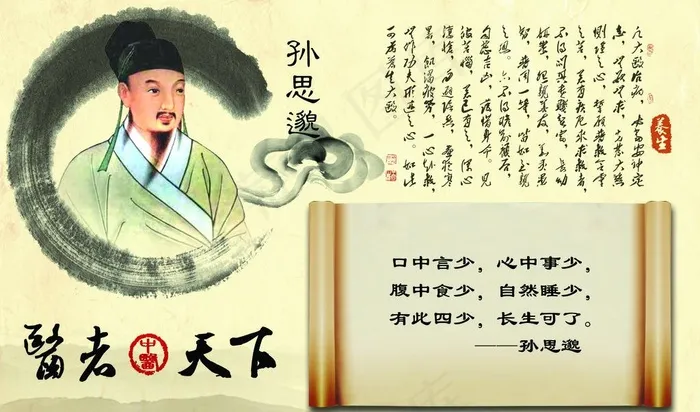 孙思邈
凡大医治病,必当安神定
志,无欲无求,先发大慈
恻隐之心,誓愿普救含灵
之苦,若有疾厄来求救者,
不得问其贵贱贫富,长幼
妍蚩,怨亲善友,华夷愚
智,普同一等,皆如至亲
之想。亦不得瞻前顾后,
自虑吉凶,护惜身命。见
彼苦恼,若己有之,深心
凄怆,勿避险巇,昼夜寒
暑,饥渴疲劳,一心赴救,
无作功夫形迹之心。如此
可为苍生大医。
养生
口中言少,心中事少,
腹中食少,自然睡少,
有此四少,长生可了。
——孙思邈
醫者中醫天下